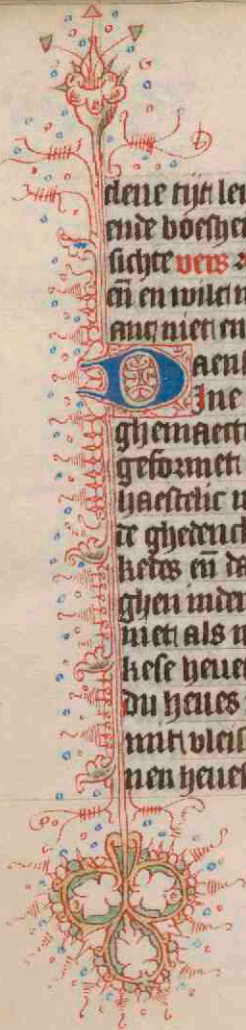 dene tijt le
ende boeshe
sichte vers
en̄ en wilt n
ant niet en
Daen
Ine
ghemaect
geformet
haestelic
te ghedenc
kedes en̄ da
ghen inder
niet als
kese heue
du heues
mit vleis
nen heues